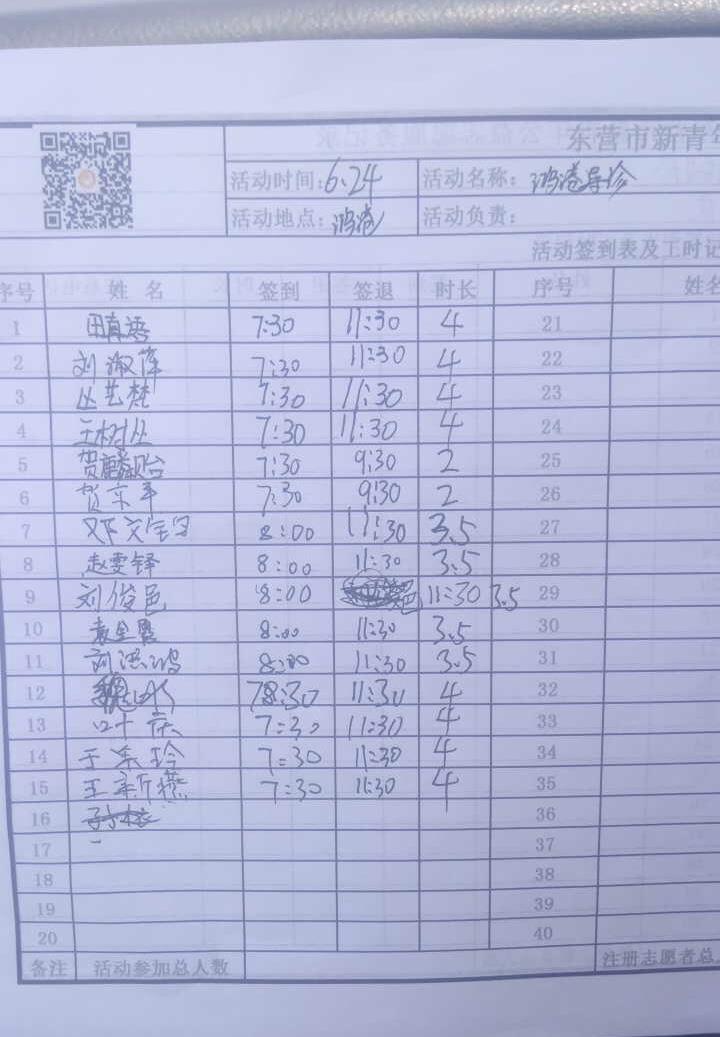 东营市新青年
活动时间:6.24 活动名称: 鸿港导诊
活动地点: 鸿港 活动负责:
活动签到表及工时记
序号 姓名 签到 签退 时长 序号 姓名
1 田真语 7:30 11:30 4 21
2 刘淑萍 7:30 11:30 4 22
3 丛艺梵 7:30 11:30 4 23
4 王树丛 7:30 11:30 4 24
5 7:30 9:30 2 25
6 7:30 9:30 2 26
7 8:00 11:30 3.5 27
8 赵雯铎 8:00 11:30 3.5 28
9 刘俊邑 8:00 11:30 3.5 29
10 8:00 11:30 3.5 30
11 8:00 11:30 3.5 31
12 11:30 4 32
13 叶庆 7:30 11:30 4 33
14 于采玲 7:30 11:30 4 34
15 王新燕 7:30 11:30 4 35
16 36
17 37
18 38
19 39
20 40
备注 活动参加总人数 注册志愿者总